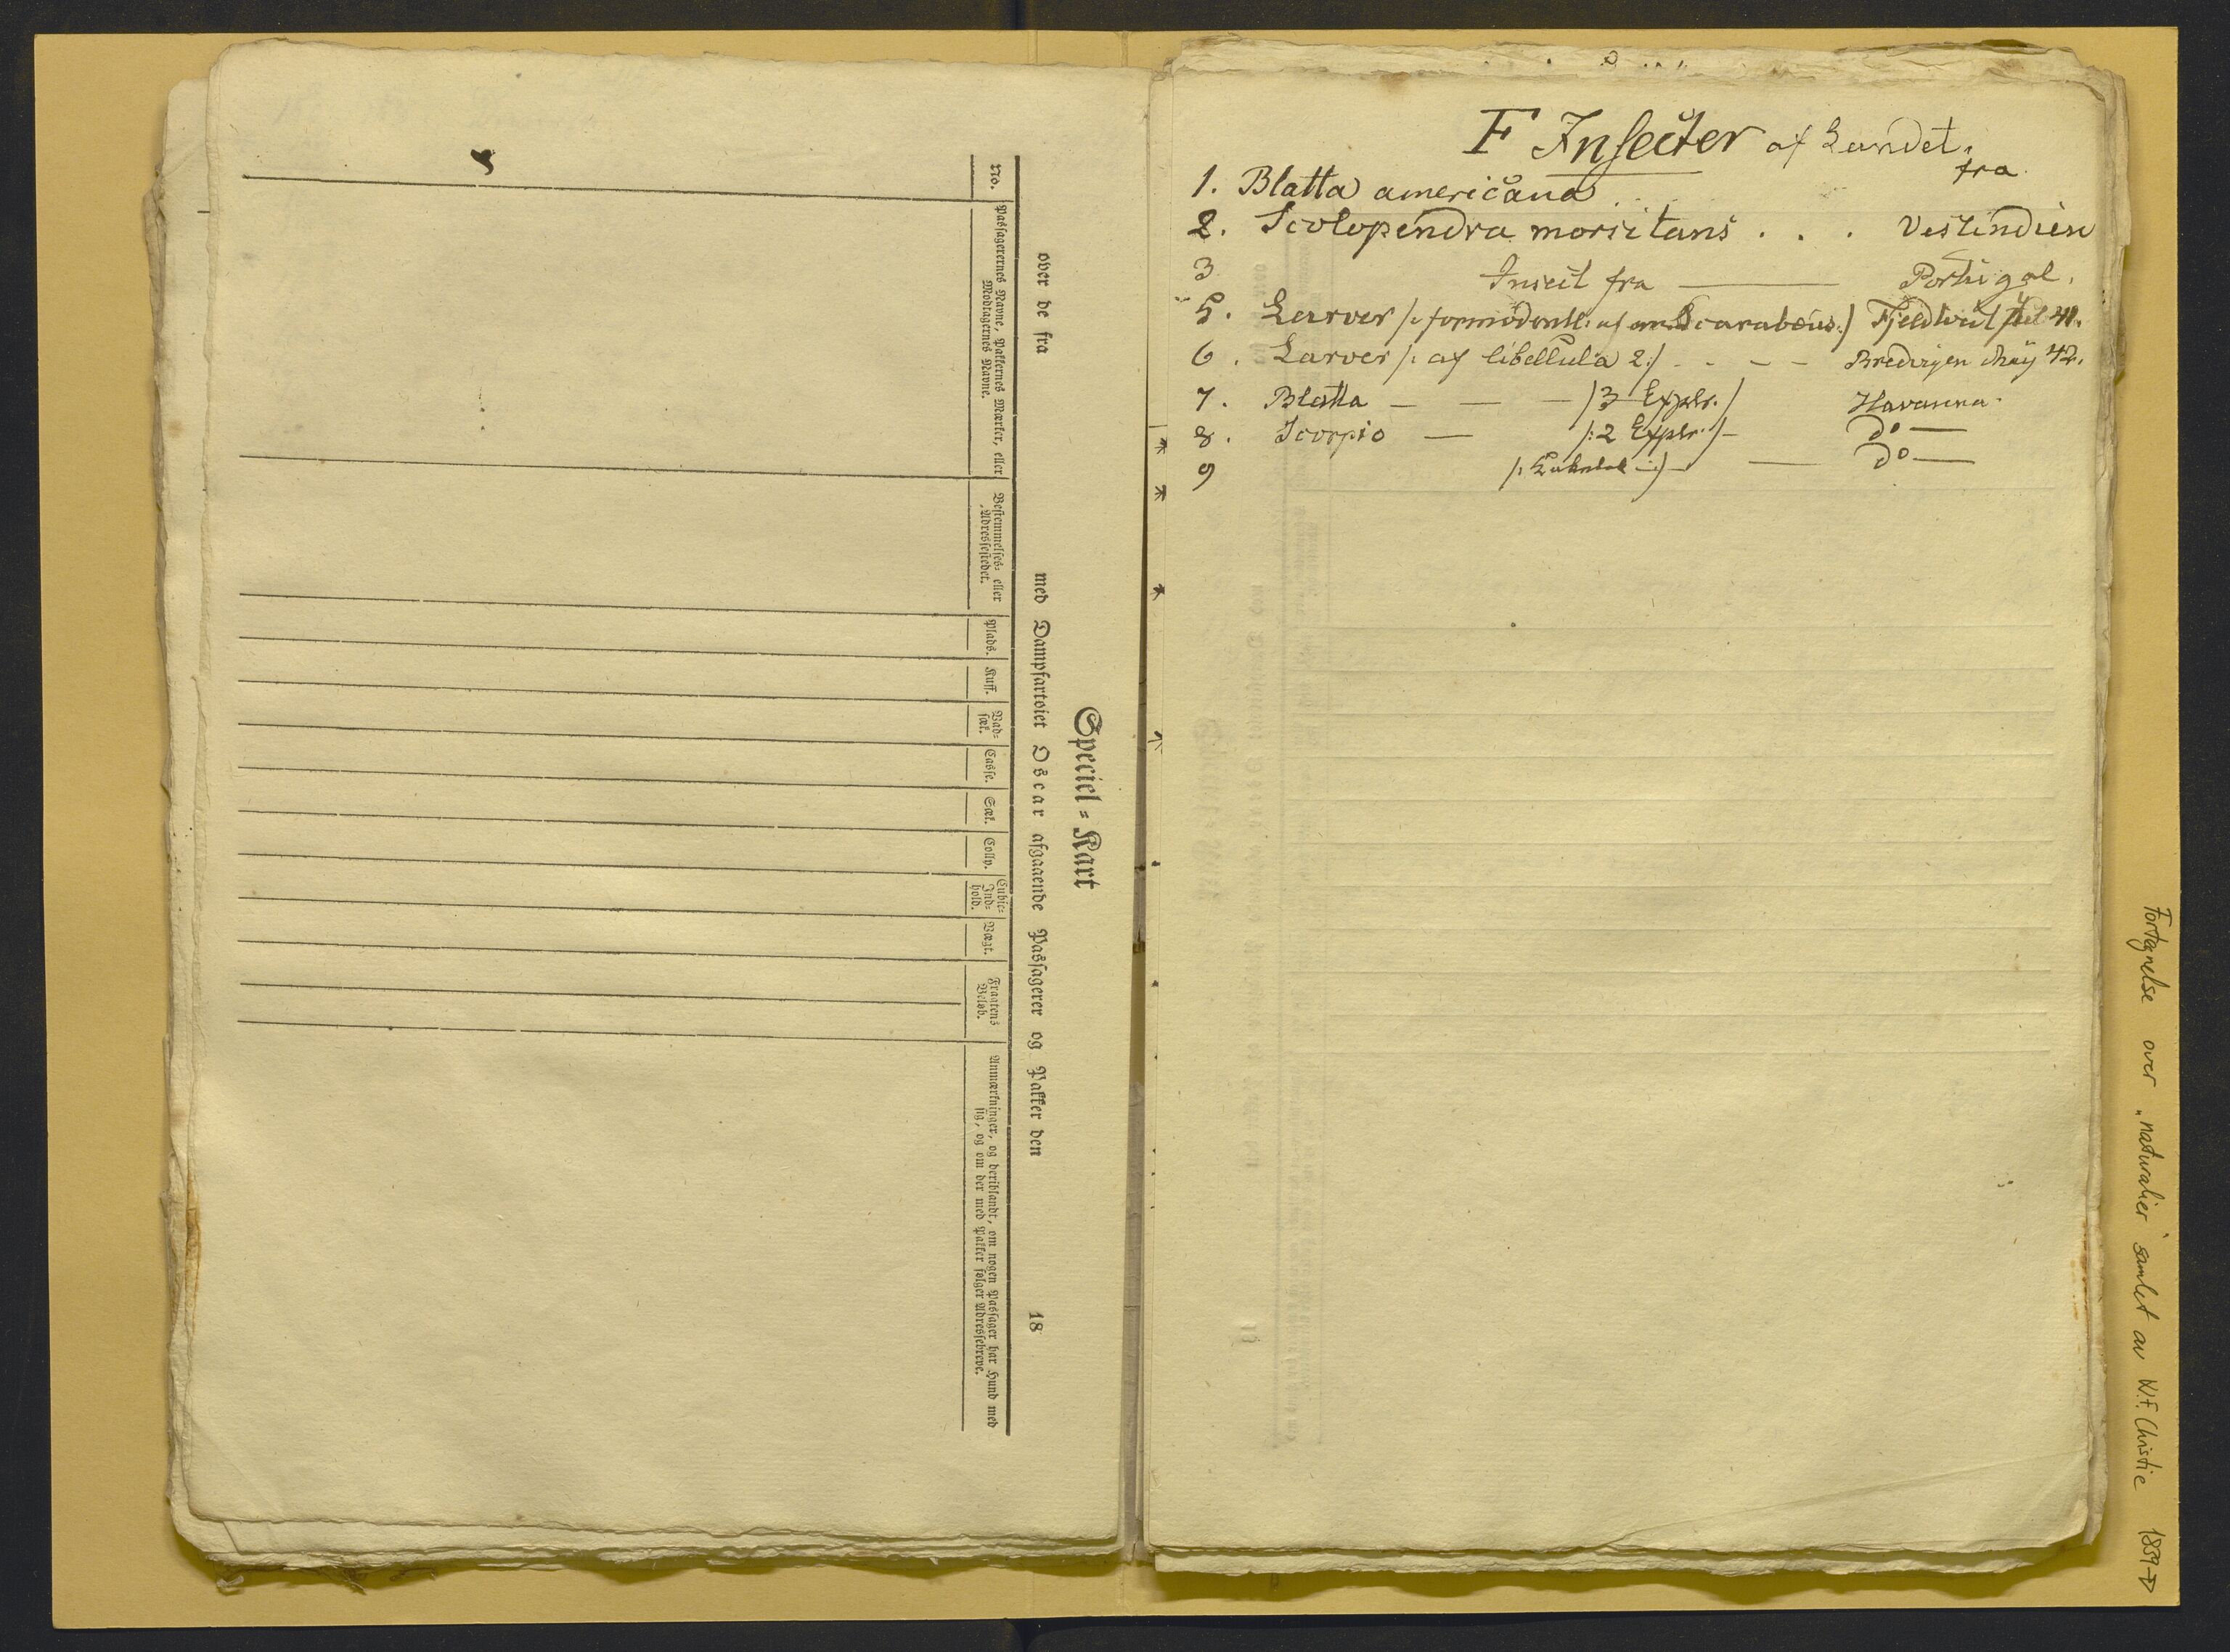 Speciel-Kart
over de fra med Dampfartøiet Oscar afgaaende Passagerer og Pakker den 18
No.
Passagerernes Navne, Pakkernes Mærker, eller
Modtagernes Navne.
Bestemmelses- eller
Adressestedet.
Plads.
Kuff.
Vad-
sæk.
Casse.
Sæk.
Colly.
Cubic-
Ind-
hold.
Vægt.
Fragtens
Beløb.
Anmærkninger, og deriblandt, om nogen Passager har Hund med
sig, og om der med Pakker følger Adressebreve.
F Insecter af Landet.
fra
1. Blatta americana
2. Scolopendra morsitans . . . Vestindien
3 Insect fra — Portugal.
5. Larver /: formodentl: af Scarabæus :/ 41.
6. Larver /: af libellula 2 :/ - - - May 42.
7. Blatta — — — /3 Explr./ Havanna.
8. Scorpio — /:2 Explr:/ - do —
9 — do —
Fortegnelse over "naturalier" samlet av W.F. Christie 1839→